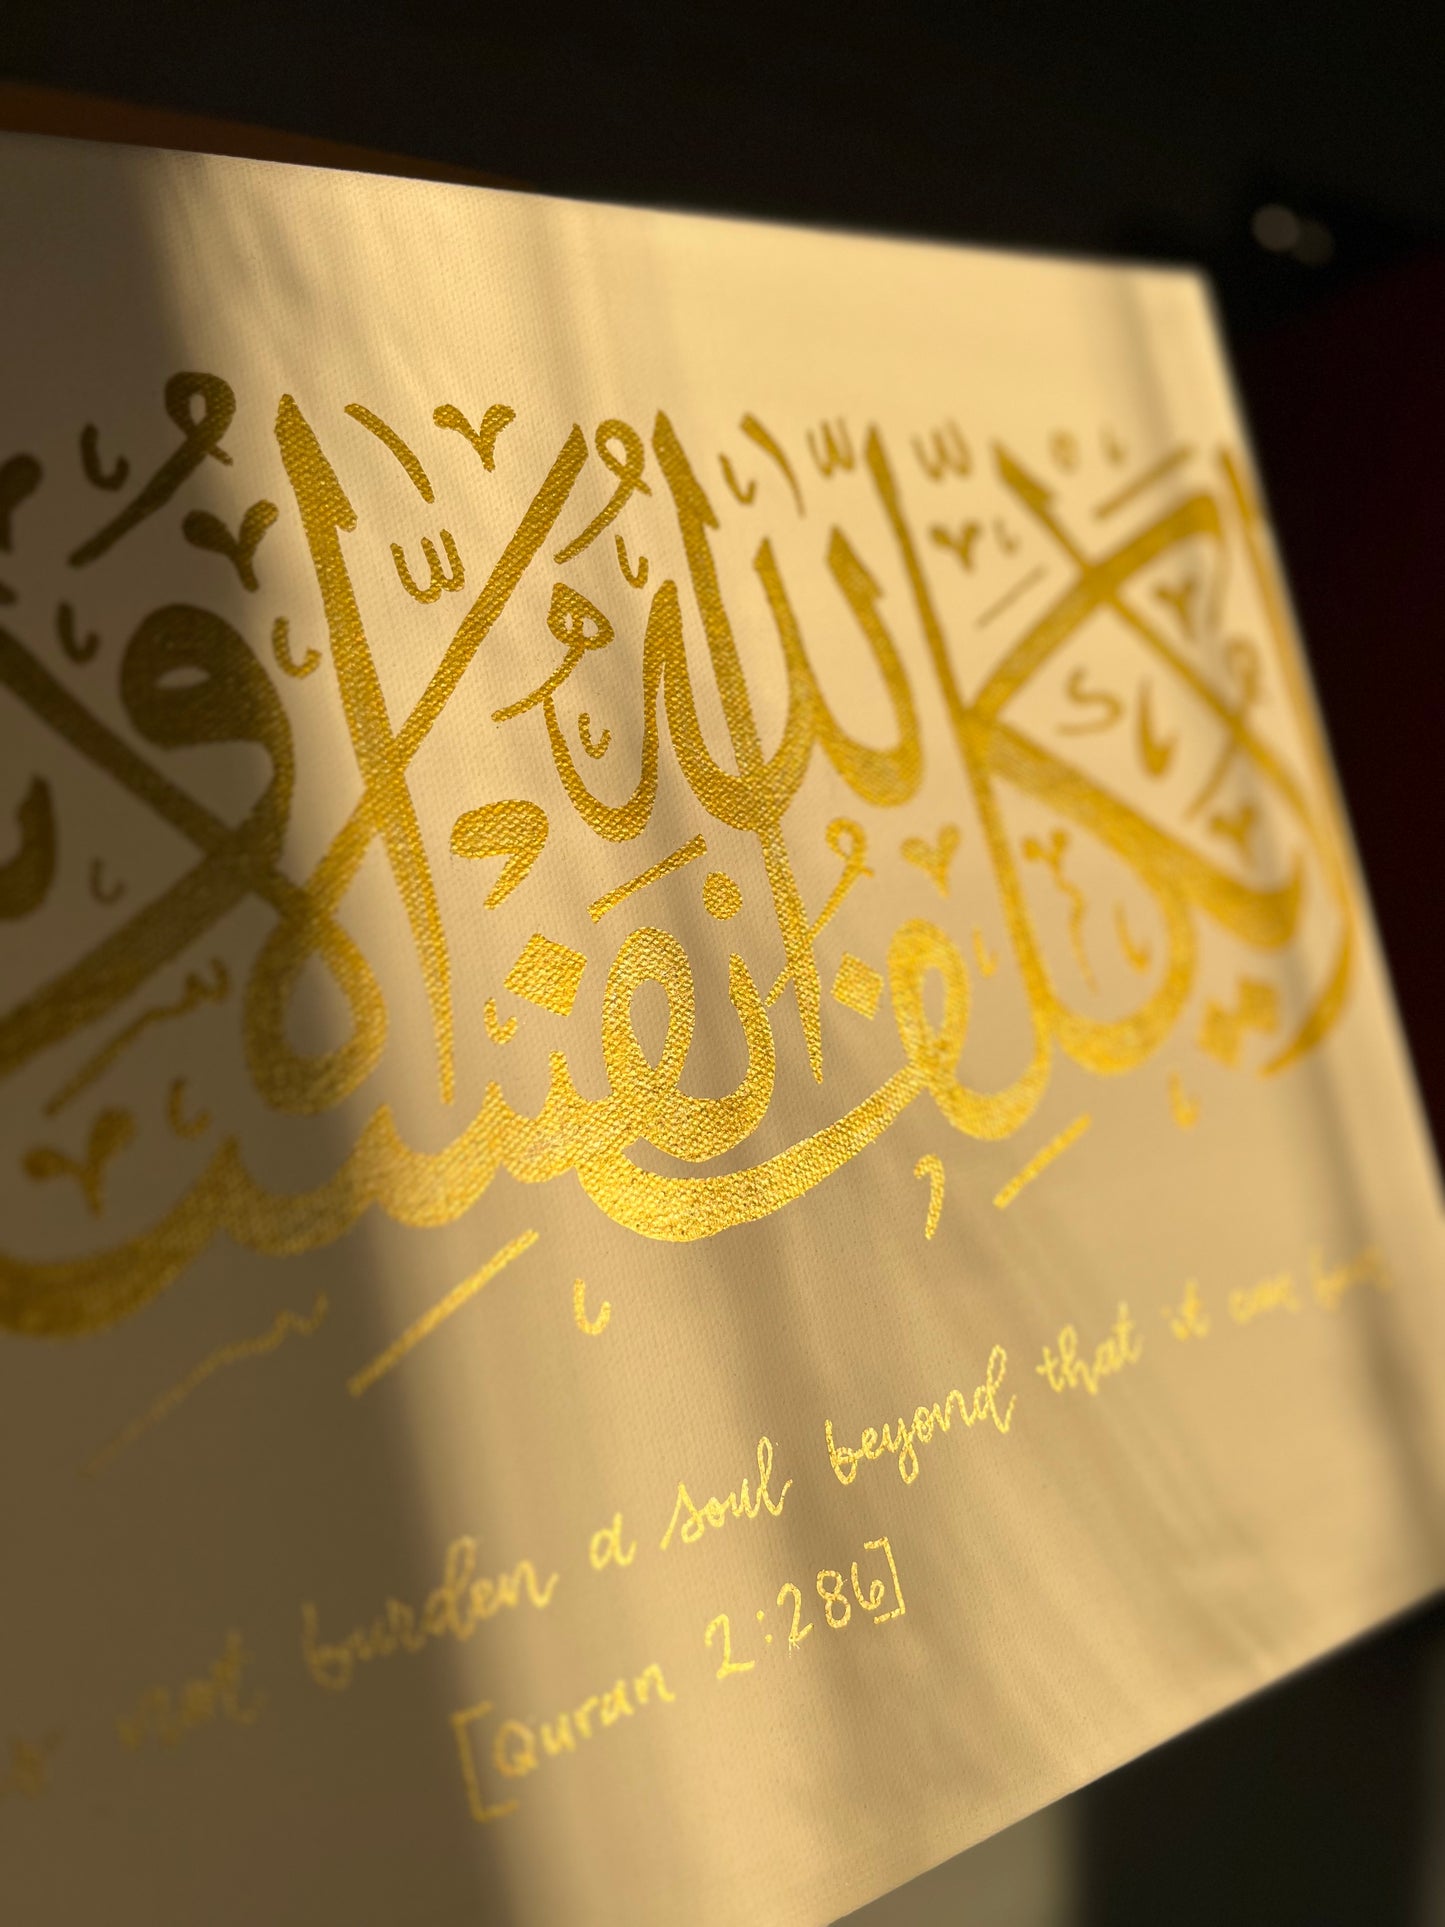 لا يكلف الله نفسا إلا و
not burden a soul beyond that it can
[Quran 2:286]